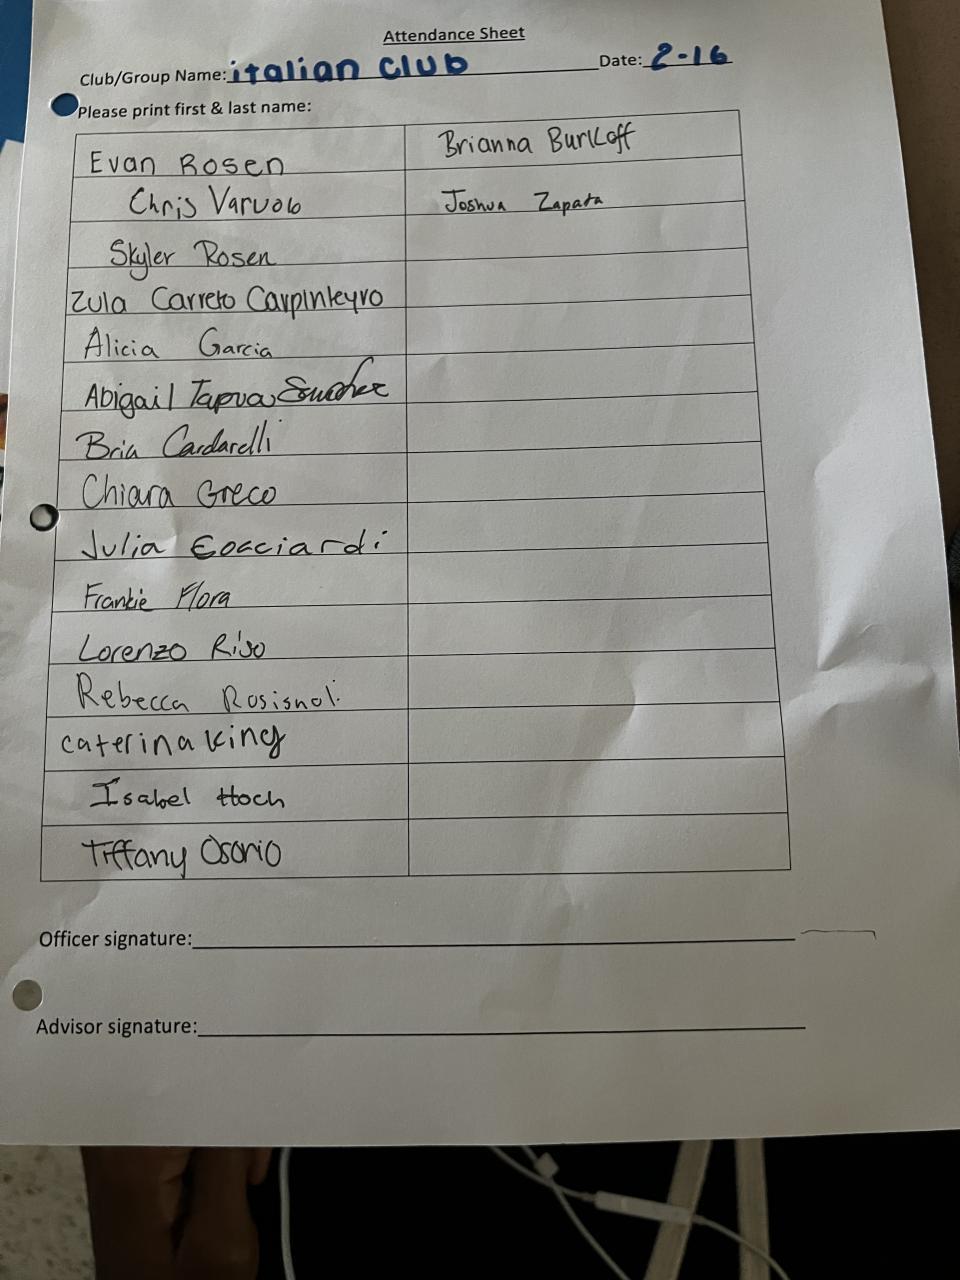 Attendance Sheet
Club/Group Name: italian club Date: 2-16
Please print first & last name:
Evan Rosen
Brianna Burkoff
Chris Varuolo
Joshua Zapata
Skyler Rosen
Zula Carreto Carpinteyro
Alicia Garcia
Abigail Tapua Sanchez
Bria Cardarelli
Chiara Greco
Julia Cocciardi
Frankie Flora
Lorenzo Riso
Rebecca Rosisnoli
caterina king
Isabel Hoch
Tiffany Osorio
Officer signature:
Advisor signature: